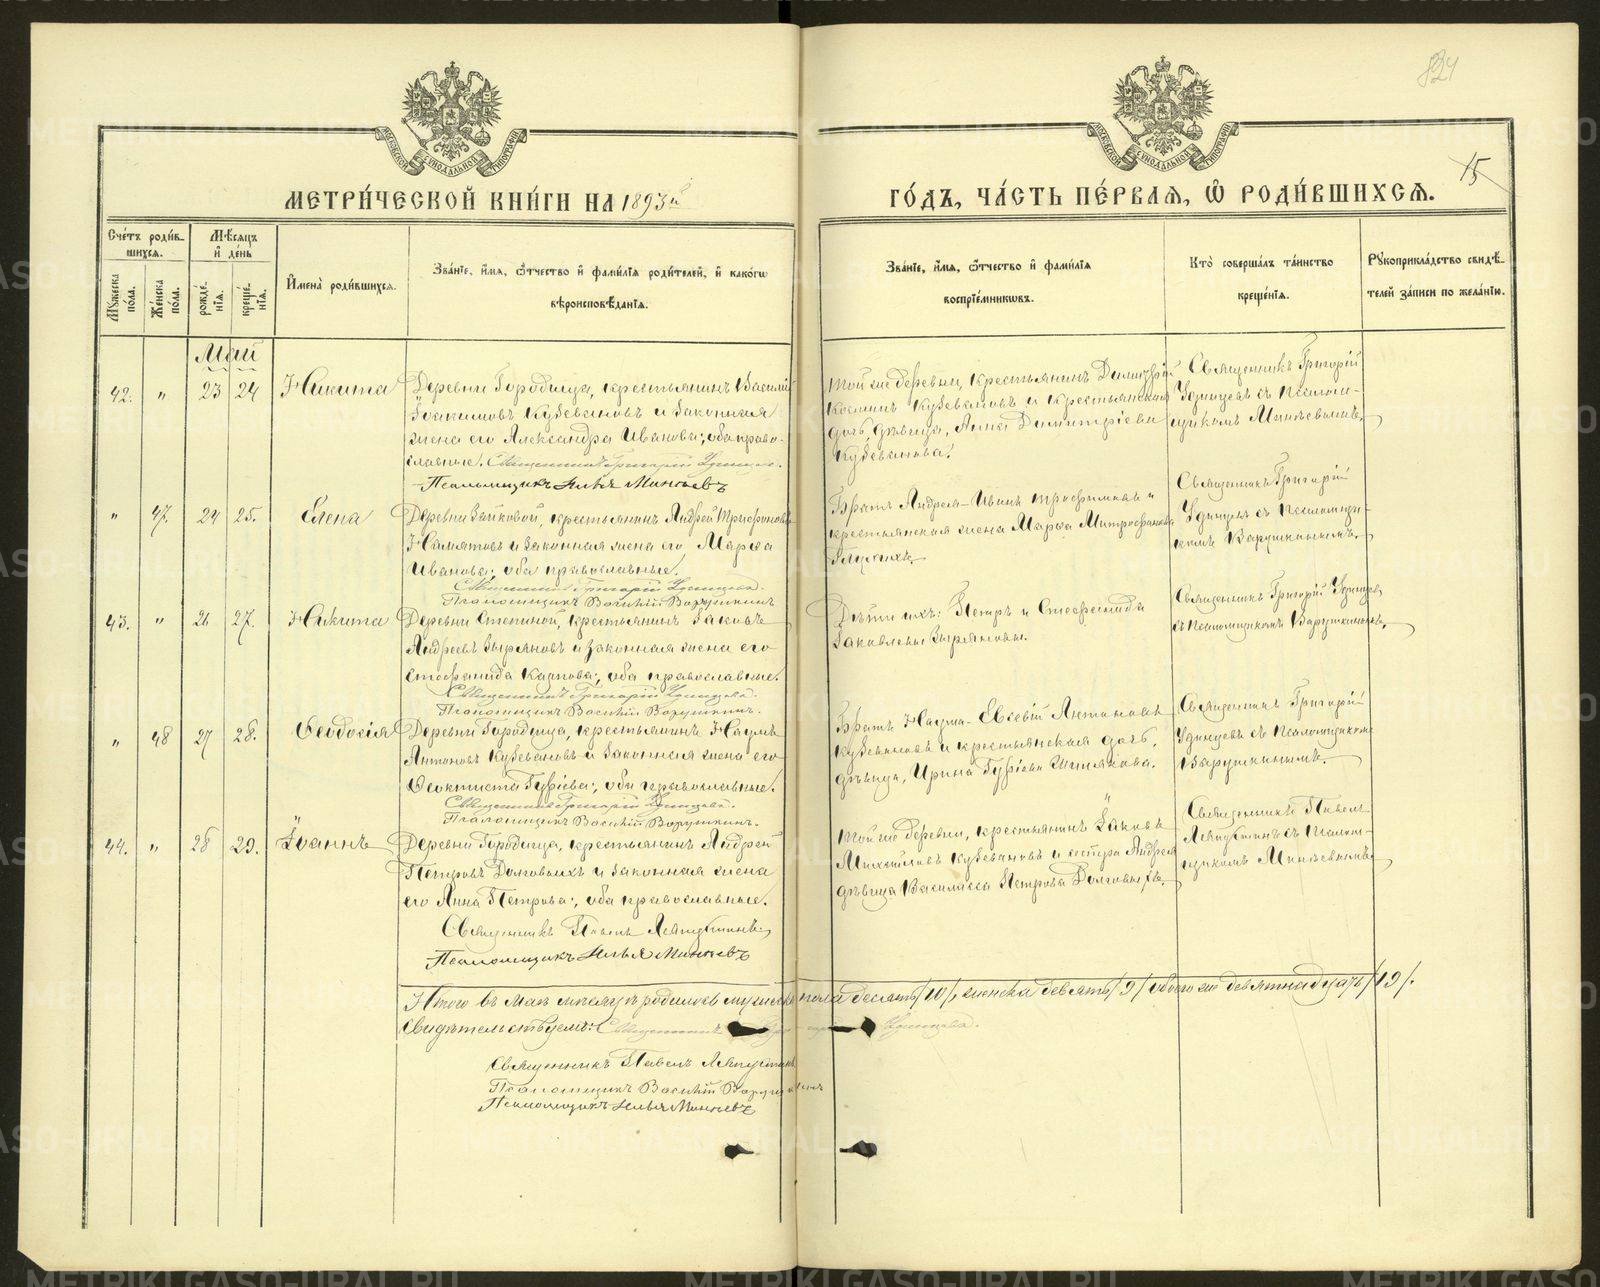 824
15
МОСКОВСКОЙ СѴНОДАЛЬНОЙ ТИПОГРАФІИ
МОСКОВСКОЙ СѴНОДАЛЬНОЙ ТИПОГРАФІИ
МЕТРИ́ЧЕСКОЙ КНИ́ГИ НА 1893й
ГО́ДЪ, ЧА́СТЬ ПЕ́РВАЯ, Ѿ РОДИ́ВШИХСѦ.
Сче́тъ роди́в-
шихсѧ.
Мꙋ́жеска пола.
Же́нска пола.
Мѣ́сѧцъ
и де́нь
рожде́-
нїѧ.
креще́-
нїѧ.
И҆мена̀ роди́вшихсѧ.
Зва́нїе, и҆́мѧ, ѻ҆́тчество и҆ фами́лїѧ роди́телей, и҆ како́гѡ
вѣроисповѣ́данїѧ.
Зва́нїе, и҆́мѧ, ѻ҆́тчество и҆ фами́лїѧ
воспрїе́мникѡвъ.
Кто̀ соверша́лъ та́инство
креще́нїѧ.
Рꙋкоприкла́дство свидѣ́-
телей за́писи по жела́нїю.
Май
42. " 23 24 Никита
Деревни Городища, крестьянинъ Василій
Іоакимовъ Кужевановъ и законная
жена его Александра Иванова; оба право-
славные. Священникъ Григорій Удинцевъ.
Псаломщикъ Илья Минѣевъ
той же деревни, крестьянинъ Димитрій
Косминъ Кужевановъ и крестьянская
дочь, дѣвица, Анна Димитріева
Кужеванова.
Священникъ Григорій
Удинцевъ съ Псалом-
щикомъ Минѣевымъ.
" 47. 24 25. Елена
Деревни Зайковой, крестьянинъ Андрей Трифоновъ
и законная жена его Марѳа
Иванова; оба православные.
Священникъ Григорій Удинцевъ.
Псаломщикъ Василій Варушкинъ
Братъ Андрея - Иванъ Трифоновъ и
крестьянская жена Марѳа Митрофанова
Священникъ Григорій
Удинцевъ съ Псаломщи-
комъ Варушкинымъ.
43. " 26 27. Никита
Деревни Степиной, крестьянинъ Іаковъ
Андреевъ Зыряновъ и законная жена его
Стефанида Карпова; оба православные.
Священникъ Григорій Удинцевъ.
Псаломщикъ Василій Варушкинъ.
Дѣти ихъ: Петръ и Стефанида
Іаковлевы Зыряновы.
Священникъ Григорій Удинцевъ
съ Псаломщикомъ Варушкинымъ.
" 48 27 28. Ѳеодосія
Деревни Городища, крестьянинъ Наумъ
Антоновъ Кужевановъ и законная жена его
Ѳеоктиста Гуріева; оба православные.
Священникъ Григорій Удинцевъ.
Псаломщикъ Василій Варушкинъ.
Братъ Наума - Евсевій Антоновъ
Кужевановъ и крестьянская дочь,
дѣвица, Ирина Гуріева Шишлкова.
Священникъ Григорій
Удинцевъ съ Псаломщикомъ
Варушкинымъ.
44. " 28 29. Іоаннъ
Деревни Городища, крестьянинъ Андрей
Петровъ Долговыхъ и законная жена
его Анна Петрова; оба православные.
Священникъ Павелъ Ляпустинъ.
Псаломщикъ Илья Минѣевъ
той же деревни, крестьянинъ Іаковъ
Михайловъ Кужевановъ и сестра Андрея
дѣвица Василисса Петрова Долговыхъ.
Священникъ Павелъ
Ляпустинъ съ Псалом-
щикомъ Минѣевымъ.
Итого въ маѣ мѣсяцѣ родилось мужеска пола десять /10/, женска девять /9/ обоего же девятнадцать /19/.
Свидѣтельствуемъ: Священникъ Григорій Удинцевъ.
Священникъ Павелъ Ляпустинъ
Псаломщикъ Василій Варушкинъ
Псаломщикъ Илья Минѣевъ
METRIKI.GASO-URAL.RU